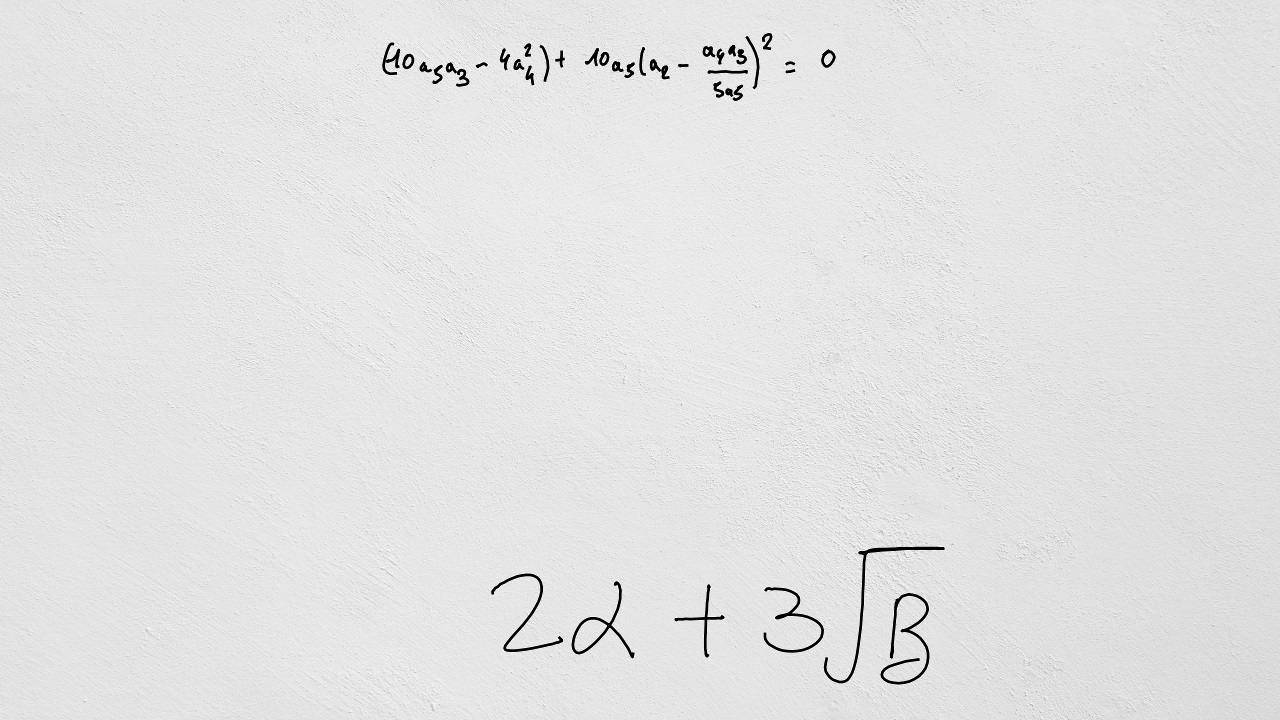 (10a₅a₃ - 4a₄²) + 10a₅(a₂ - a₄a₃/5a₅)² = 0
2α + 3√β